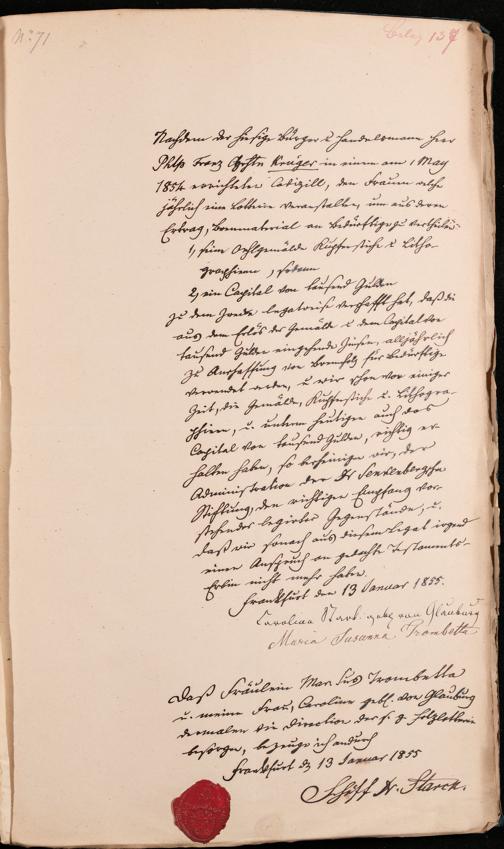 No 71
Beleg 137
Nachdem der hiesige Bürger u Handelsmann Herr
Philp Franz Krüger in einem am 1 May
1854 errichteten Codizill, den Frauen welche
jährlich eine Lotterie veranstalten, um aus deren
Ertrag, Brennmaterial an Bedürftige zu vertheilen
1, seine Oehlgemälde Kupferstiche u Litho-
graphieen, sodann
2, ein Capital von tausend Gulden
zu dem Zwecke legatweise vermacht hat, daß die
aus dem Erlös der Gemälde u dem Capital von
tausend Gulden eingehende Zinsen, alljährlich
zu Anschaffung von Brennholz für Bedürftige
verwendet werden, u wir schon vor einiger
Zeit, die Gemälde, Kupferstiche u. Lithogra-
phieen, u. unterm heutigen auch das
Capital von tausend Gulden, richtig er-
halten haben, so bescheinigen wir, der
Administration der Dr Senckenbergschen
Stiftung, den richtigen Empfang vor-
stehender legirter Gegenstände, u.
daß wir sonach aus diesem Legat irgend
einen Anspruch an gedachte Testaments-
Erbin nicht mehr haben.
Frankfurt den 13 Januar 1855.
Carolina Starck geb. von Glauburg
Maria Susanna Trombetta
Daß Fräulein Mar. Sus. Trombetta
u. meine Frau, Caroline gebl. von Glauburg
dermalen die Direction der Holzlotterie
besorgen, bezeuge ich andurch
Frankfurt d 13 Januar 1855
Schöff Dr. Starck.